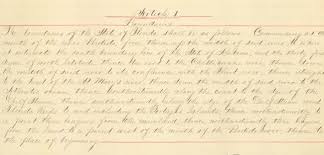 Article I
Boundaries
The boundaries of the State of Florida shall be as follows Commencing at the
mouth of the river Perdido, from thence up the middle of said river to where
it intersects the south boundary line of the State of Alabama and the thirty first
degree of north latitude; then due east to the Chattahoochee river; then down
the middle of said river to its confluence with the Flint river; then straight
to the head of the St Mary's river; then down the middle of said river to the
Atlantic ocean; then southeastwardly along the coast to the edge of the
Gulf Stream; then southwestwardly along the edge of the Gulf Stream and
Florida Reefs to and including the Tortugas Islands; then northeastwardly to
a point three leagues from the mainland; then northwestwardly three leagues
from the land, to a point west of the mouth of the Perdido river; then to
the place of beginning